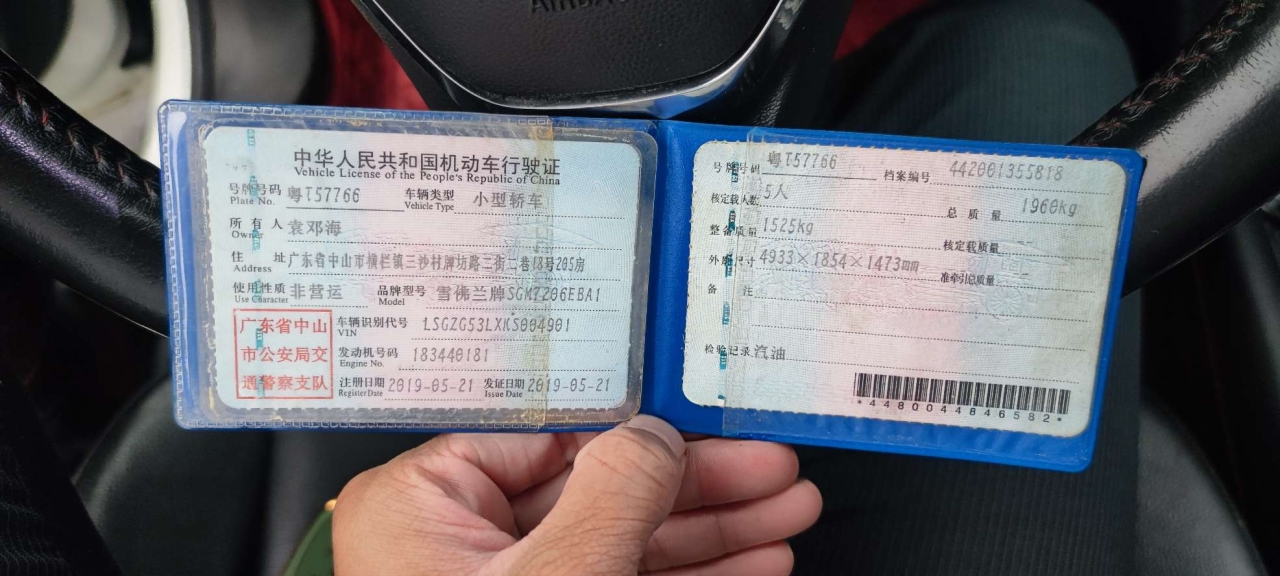 AIRBAG
中华人民共和国机动车行驶证
Vehicle License of the People's Republic of China
号牌号码 粤T57766 车辆类型 小型轿车
Plate No. Vehicle Type
所有人 袁邓海
Owner
住址 广东省中山市横栏镇三沙村牌坊路二街二巷18号205房
Address
使用性质 非营运 品牌型号 雪佛兰牌SGM7206EBA1
Use Character Model
广东省中山
市公安局交
通警察支队
车辆识别代号 LSGZG53LXKS004901
VIN
发动机号码 183440181
Engine No.
注册日期 2019-05-21 发证日期 2019-05-21
Register Date Issue Date
号牌号码 粤T57766 档案编号 442001355818
核定载人数 5人 总质量 1960kg
整备质量 1525kg 核定载质量 --
外廓尺寸 4933×1854×1473mm 准牵引总质量 --
备注
检验记录 汽油
*4480044846582*